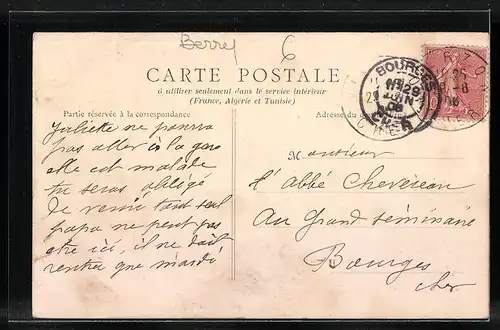 Berry
6
CARTE POSTALE
à utiliser seulement dans le service intérieur
(France, Algérie et Tunisie)
Partie réservée à la correspondance
Adresse du
BOURGES
29
CHER
Juliette ne pourra
pas aller à la gare
elle est malade
tu seras obligé
de venir tout seul
papa ne peut pas
etre ici, il ne doit
rentrer que mardi
Monsieur
l'Abbé Chevereau
Au Grand séminaire
Bourges
Cher